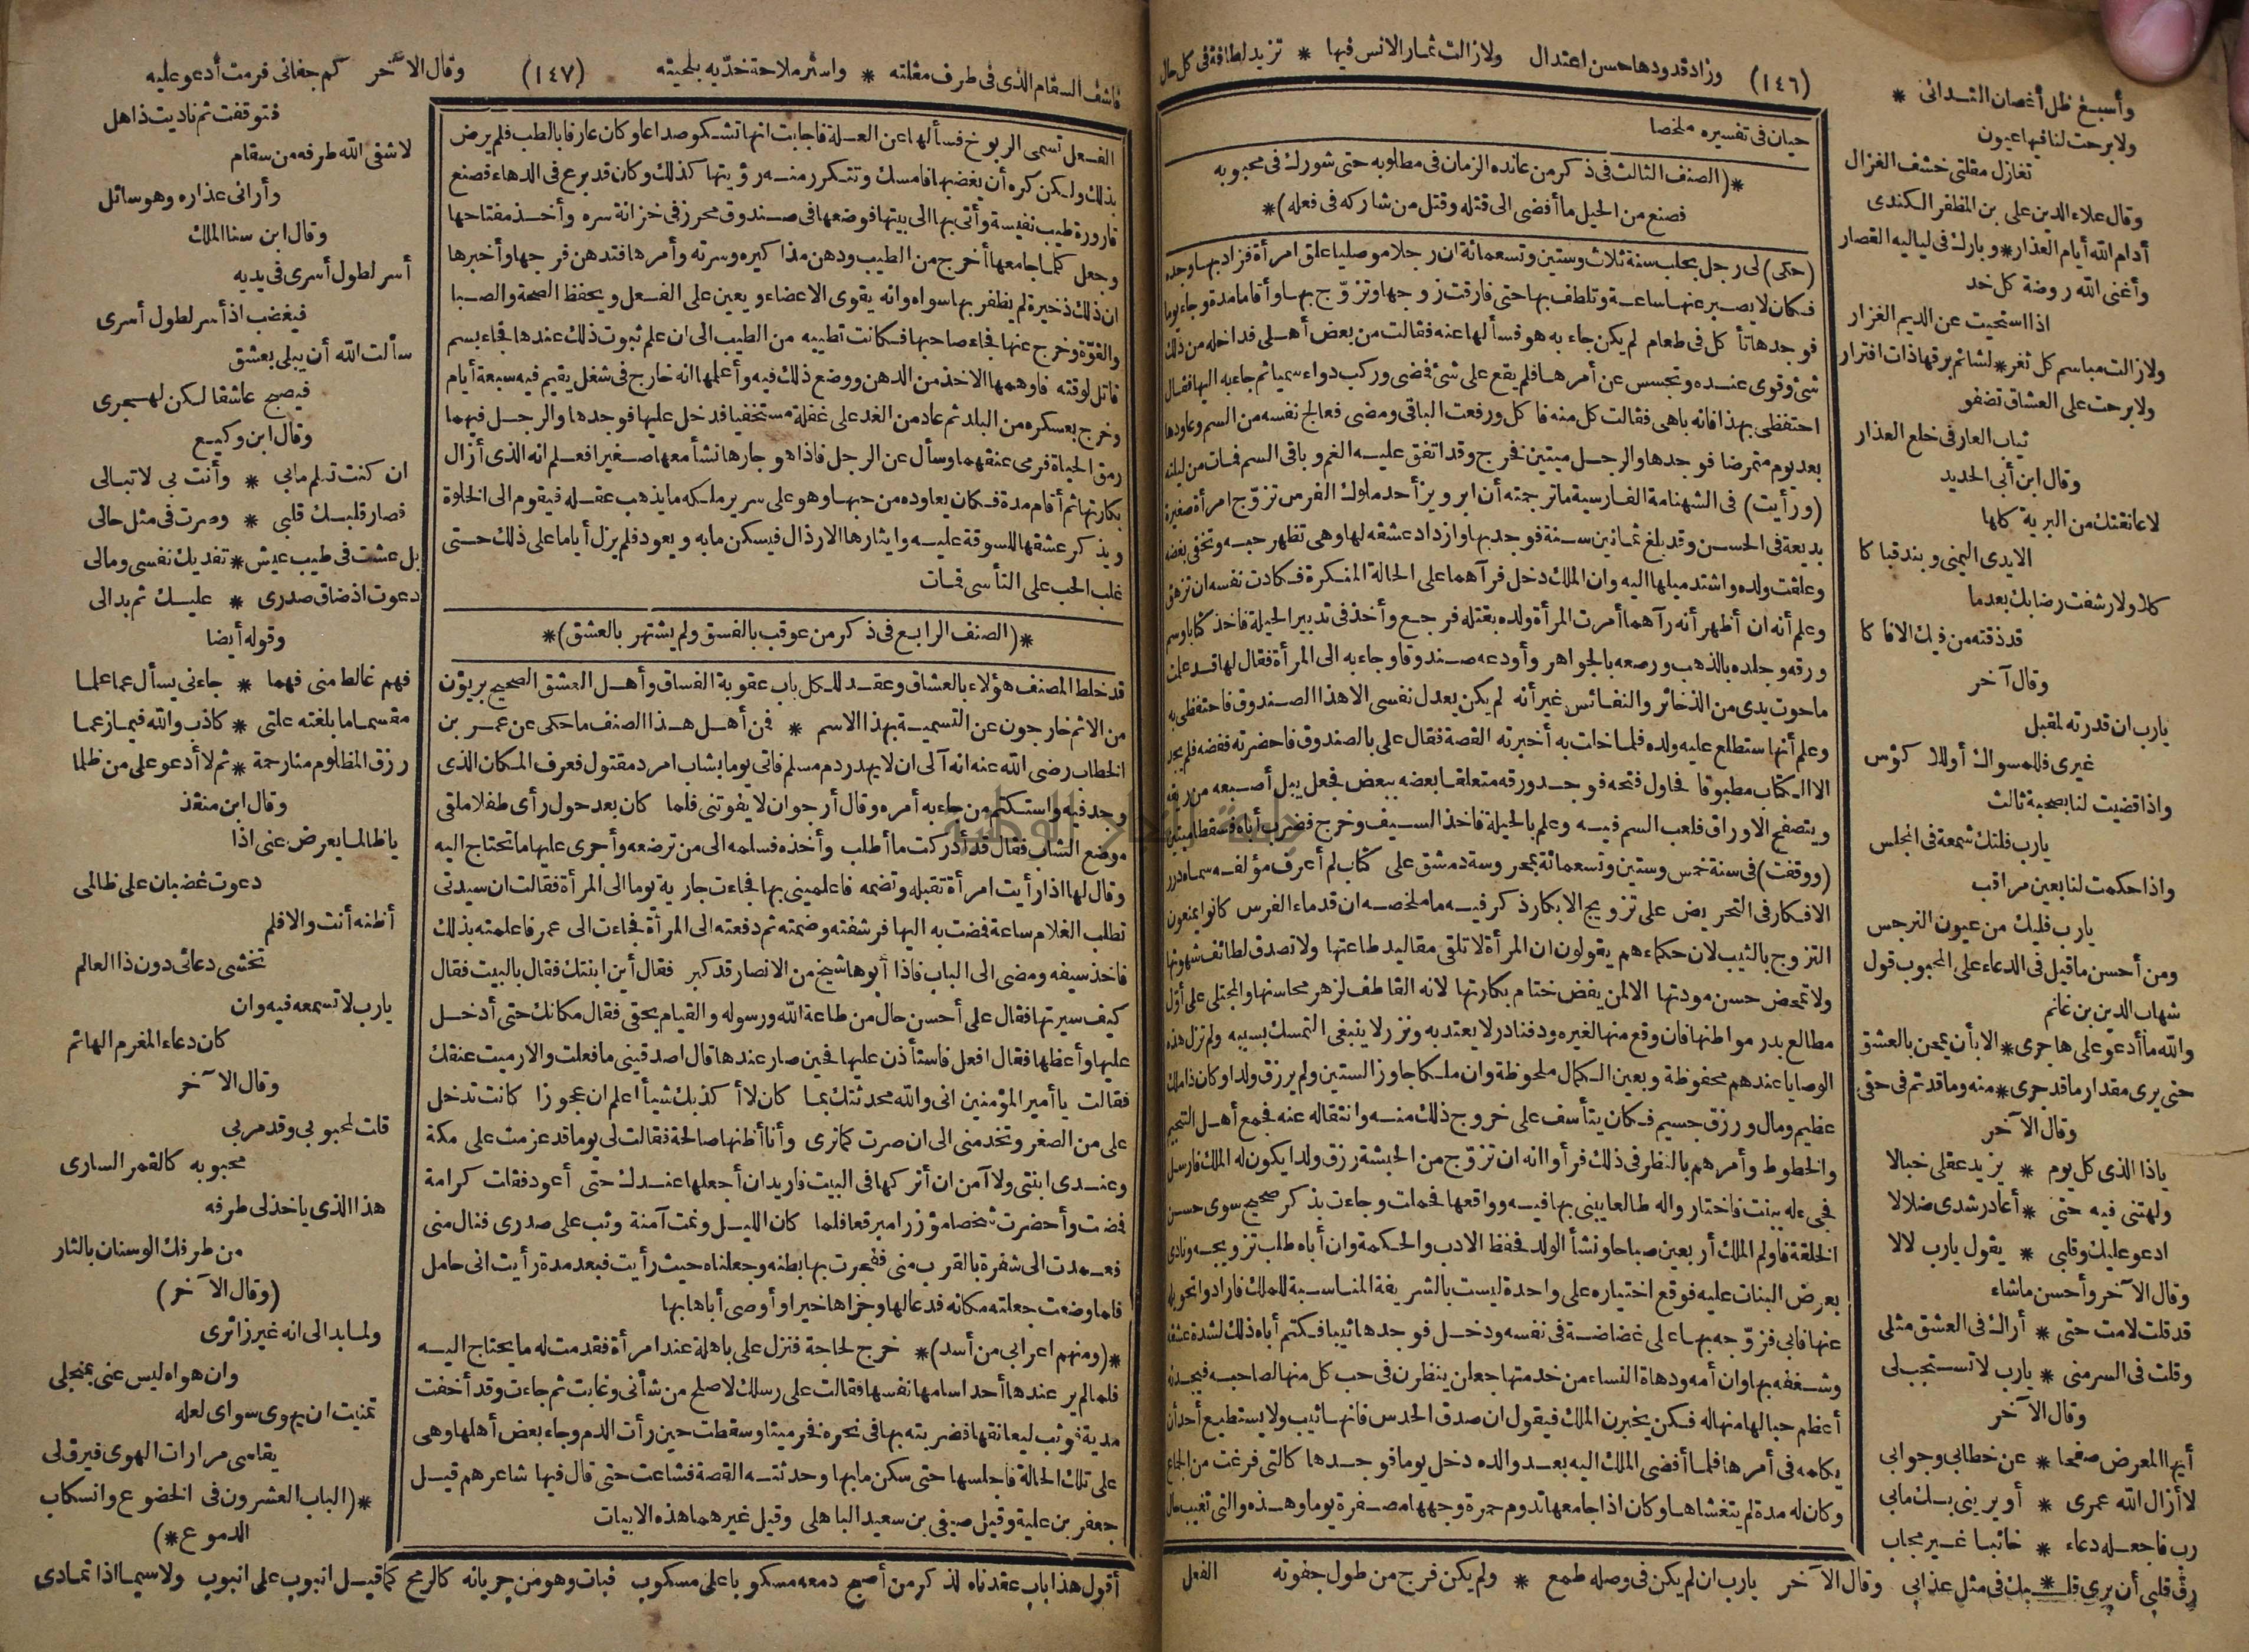 (١٤٦) وزاد قدودها حسن اعتدال ولازالت ثمار الانس فيها * تزيد لطافة فى كل حال
وأسبغ ظل أغصان التدانى *
ولا برحت لنا فيها عيون
تغازل مقلتى خشف الغزال
وقال علاء الدين على بن المظفر الكندى
أدام الله أيام العذار * وبارك فى لياليه القصار
وأغنى الله روضة كل خد
اذا استحيت عن الديم الغزار
ولازالت مباسم كل ثغر * لشائم برقها ذات افترار
ولا برحت على العشاق تضفو
ثياب العار فى خلع العذار
وقال ابن أبى الحديد
لا عانقتك من البرية كلها
الا يدى اليمنى وبند قباكا
كلا ولا رشفت رضابك بعدما
قد ذقته من فيك الا فاكا
وقال آخر
يارب ان قدرته لمقبل
غيرى فللمسواك أو للا كؤس
واذا قضيت لنا بصحبة ثالث
يارب فلتك شمعة فى المجلس
واذا حكمت لنا بعين مراقب
يارب فليك من عيون النرجس
ومن أحسن ما قيل فى الدعاء على المحبوب قول
شهاب الدين بن غانم
والله ما أدعو على هاجرى * الا بأن يمحن بالعشق
حتى يرى مقدار ما قد جرى * منه وما قد تم فى حقى
وقال الآخر
ياذا الذى كل يوم * يزيد عقلى خبالا
ولهتنى فيه حتى * أعاد رشدى ضلالا
ادعو عليك وقلبى * يقول يارب لالا
وقال الآخر وأحسن ماشاء
قد قلت لامت حتى * أراك فى العشق مثلى
وقلت فى السر منى * يارب لا تستجب لى
وقال الآخر
أيها المعرض صفحا * عن خطابى وجوابى
لا أزال الله عمرى * أو يرينى بك مابى
رب فاجعله دعاء * خائبا غير مجاب
رق قلبى أن يرى قلـ * ـبك فى مثل عذابى وقال الآخر يارب ان لم يكن فى وصله طمع * ولم يكن فرج من طول جفوته الفعل
حيان فى تفسيره ملخصا
*(الصنف الثالث فى ذكر من عانده الزمان فى مطلوبه حتى شورك فى محبوبه
فصنع من الحيل ما أفضى الى قتله وقتل من شاركه فى فعله)*
(حكى) لى رجل بحلب سنة ثلاث وستين وتسعمائة ان رجلا موصليا علق امرأة فزاد بها وجده
فكان لا يصبر عنها ساعة وتلطف بها حتى فارقت زوجها وتزوج بها وأقاما مدة وجاء يوما
فوجدها تأكل فى طعام لم يكن جاء به هو فسألها عنه فقالت من بعض أهلى فداخله من ذلك
شئ وقوى عنده وتجسس عن أمرها فلم يقع على شئ فمضى وركب دواء سميا ثم جاء به اليها فقال
احتفظى بهذا فانه باهى فقالت كل منه فاكل ورفعت الباقى ومضى فعالج نفسه من السم وعاودها
بعد يوم متمرضا فوجدها والرجل ميتين فخرج وقد اتفق عليه الغم وباقى السم فمات من ليلته
(ورأيت) فى الشهنامة الفارسية ما ترجمته أن ابرويز أحد ملوك الفرس تزوج امرأة صغيرة
بديعة فى الحسن وقد بلغ ثمانين سنة فوجد بها وازداد عشقه لها وهى تظهر حبه وتخفى بغضه
وعلقت ولده واشتد ميلها اليه وان الملك دخل فرآهما على الحالة المنكرة فكادت نفسه ان تزهق
وعلم أنه ان أظهر أنه رآهما أمرت المرأة ولده بقتله فرجع وأخذ فى تدبير الحيلة فاخذ كتابا وسم
ورقه وجلده بالذهب ورصعه بالجواهر وأودعه صندوقا وجاء به الى المرأة فقال لها قد علمت
ما حوت يدى من الذخائر والنفائس غير أنه لم يكن يعدل نفسى الا هذا الصندوق فاحتفظى به
وعلم أنها ستطلع عليه ولده فلما خلت به أخبرته القصة فقال على بالصندوق فاحضرته ففضه فلم يجد
الا الكتاب مطبوقا فحاول فتحه فوجد ورقه متعلقا بعضه ببعض فجعل يبل أصبعه من ريقه
ويتصفح الاوراق فلعب السم فيه وعلم بالحيلة فاخذ السيف وخرج فضرب أباه فسقطا ميتين
(ووقفت) فى سنة خمس وستين وتسعمائة بمحروسة دمشق على كتاب لم أعرف مؤلفه سماه درر
الافكار فى التحريض على تزويج الابكار ذكر فيه ما ملخصه ان قدماء الفرس كانوا يمنعون
التزوج بالثيب لان حكماءهم يقولون ان المرأة لا تلقى مقاليد طاعتها ولا تصدق لطائف شهوتها
ولا تمحض حسن مودتها الا لمن يفض ختام بكارتها لانه القاطف لزهر محاسنها والمجتلى على أول
مطالع بدر مواطنها فان وقع منها لغيره ود فنادر لا يعتد به ونزر لا ينبغى التمسك بسببه ولم تزل هذه
الوصايا عندهم محفوظة وبعين الكمال ملحوظة وان ملكا جاوز الستين ولم يرزق ولدا وكان ذا ملك
عظيم ومال ورزق جسيم فكان يتأسف على خروج ذلك منه وانتقاله عنه فجمع أهل التنجيم
والخطوط وأمرهم بالنظر فى ذلك فرأوا انه ان تزوج من الحبشة رزق ولدا يكون له الملك فارسل
فجىء له ببنت فاختاروا له طالعا يبنى بها فيه وواقعها فحملت وجاءت بذكر صحيح سوى حسن
الخلقة فاولم الملك أربعين صباحا ونشأ الولد فحفظ الادب والحكمة وان أباه طلب تزويجه ونادى
بعرض البنات عليه فوقع اختياره على واحدة ليست بالشريفة المناسبة للملك فارادوا تحويله
عنها فابى فزوجه بها على غضاضة فى نفسه ودخل فوجدها ثيبا فكتم أباه ذلك لشدة عشقه
وشغفه بها وان أمه ودهاة النساء من خدمتها جعلن ينظرن فى حب كل منها لصاحبه فيجدنه
أعظم حبا لها منها له فكن يخبرن الملك فيقول ان صدق الحدس فانها ثيب ولا يستطيع أحد أن
يكلمه فى أمرها فلما أفضى الملك اليه بعد والده دخل يوما فوجدها كالتى فرغت من الجماع
وكان له مدة لم يتغشاها وكان اذا جامعها تدوم حمرة وجهها مصفرة يوما وهذه والتى تغيب حال
فاشف السقام الذى فى طرف مقلته * واستر ملاحة خديه بلحيته (١٤٧) وقال الآخر كم جفانى فرمت أدعو عليه
الفعل تسمى الربوخ فسألها عن العلة فاجابت انها تشكو صداعا وكان عارفا بالطب فلم يرض
بذلك ولكن كره أن يغضبها فامسك وتتكرر منه رؤيتها كذلك وكان قد برع فى الدهاء فصنع
قارورة طيب نفيسة وأتى بها الى بيتها فوضعها فى صندوق محرز فى خزانة سره وأخذ مفتاحها
وجعل كلما جامعها أخرج من الطيب ودهن مذاكيره وسرته وأمرها فتدهن فرجها وأخبرها
ان ذلك ذخيرة لم يظفر بها سواه وانه يقوى الاعضاء ويعين على الفعل ويحفظ الصحة والصبا
والقوة وخرج عنها فجاء صاحبها فكانت تطيبه من الطيب الى ان علم ثبوت ذلك عندها فجاء بسم
قاتل لوقته فاوهمها الاخذ من الدهن ووضع ذلك فيه وأعلمها انه خارج فى شغل يقيم فيه سبعة أيام
وخرج بعسكره من البلد ثم عاد من الغد على غفلة مستخفيا فدخل عليها فوجدها والرجل فيهما
رمق الحياة فرمى عنقهما وسأل عن الرجل فاذا هو جارها نشأ معها صغيرا فعلم انه الذى أزال
بكارتها ثم أقام مدة فكان يعاوده من حبها وهو على سرير ملكه ما يذهب عقله فيقوم الى الخلوة
ويذكر عشقها للسوقة عليه وايثارها الارذال فيسكن مابه ويعود فلم يزل أياما على ذلك حتى
غلب الحب على التأسى فمات
*(الصنف الرابع فى ذكر من عوقب بالفسق ولم يشتهر بالعشق)*
قد خلط المصنف هؤلاء بالعشاق وعقد للكل باب عقوبة الفساق وأهل العشق الصحيح بريؤن
من الاثم خارجون عن التسمية بهذا الاسم * فمن أهل هذا الصنف ما حكى عن عمر بن
الخطاب رضى الله عنه انه آلى ان لا يهدر دم مسلم فاتى يوما بشاب امرد مقتول فعرف المكان الذى
وجد فيه واستكتم من جاء به أمره وقال أرجو ان لا يفوتنى فلما كان بعد حول رأى طفلا ملقى
موضع الشاب فقال قد أدركت ما أطلب وأخذه فسلمه الى من ترضعه وأجرى عليها ما تحتاج اليه
وقال لها اذا رأيت امرأة تقبله وتضمه فاعلمينى بها فجاءت جارية يوما الى المرأة فقالت ان سيدتى
تطلب الغلام ساعة فمضت به اليها فرشفته وضمته ثم دفعته الى المرأة فجاءت الى عمر فاعلمته بذلك
فاخذ سيفه ومضى الى الباب فاذا أبوها شيخ من الانصار قد كبر فقال أين ابنتك فقال بالبيت فقال
كيف سيرتها فقال على أحسن حال من طاعة الله ورسوله والقيام بحقى فقال مكانك حتى أدخل
عليها وأعظها فقال افعل فاستأذن عليها فحين صار عندها قال اصدقينى ما فعلت والا رميت عنقك
فقالت يا أمير المؤمنين انى والله محدثتك بما كان لا أكذبك شيأ اعلم ان عجوزا كانت تدخل
على من الصغر وتخدمنى الى ان صرت كما ترى وأنا أظنها صالحة فقالت لى يوما قد عزمت على مكة
وعندى ابنتى ولا آمن ان أتركها فى البيت فاريد ان أجعلها عندك حتى أعود فقلت كرامة
فمضت وأحضرت شخصا مؤزرا مبرقعا فلما كان الليل ونمت آمنة وثب على صدرى فنال منى
فعمدت الى شفرة بالقرب منى ففجرت بها بطنه وجعلناه حيث رأيت فبعد مدة رأيت انى حامل
فلما وضعت جعلته مكانه فدعا لها وجزاها خيرا وأوصى أباها بها
*(ومنهم اعرابى من أسد)* خرج لحاجة فنزل على باهلة عند امرأة فقدمت له ما يحتاج اليه
فلما لم ير عندها أحدا سامها نفسها فقالت على رسلك لاصلح من شأنى وغابت ثم جاءت وقد أخفت
مدية فوثب ليعانقها فضربته بها فى نحره فخر ميتا وسقطت حين رأت الدم وجاء بعض أهلها وهى
على تلك الحالة فاجلسها حتى سكن مابها وحدثته القصة فشاعت حتى قال فيها شاعرهم قيل
جعفر بن علية وقيل صيفى بن سعيد الباهلى وقيل غيرهما هذه الابيات
فتوقفت ثم ناديت ذاهل
لا شفى الله طرفه من سقام
وأرانى عذاره وهو سائل
وقال ابن سنا الملك
أسر لطول أسرى فى يديه
فيغضب اذ أسر لطول أسرى
سألت الله أن يبلى بعشق
فيصبح عاشقا لكن لهجرى
وقال ابن وكيع
ان كنت تعلم مابى * وأنت بى لا تبالى
فصار قلبك قلبى * وصرت فى مثل حالى
بل عشت فى طيب عيش * تفديك نفسى ومالى
دعوت اذ ضاق صدرى * عليك ثم بدالى
وقوله أيضا
فهم غالط منى فهما * جاءنى يسأل عما علما
مقسما ما بلغته علتى * كاذب والله فيما زعما
رزق المظلوم منا رحمة * ثم لا أدعو على من ظلما
وقال ابن منقذ
يا ظالما يعرض عنى اذا
دعوت غضبان على ظالمى
أظنه أنت والا فلم
تخشى دعائى دون ذا العالم
يارب لا تسمعه فيه وان
كان دعاء المغرم الهائم
وقال الآخر
قلت لمحبوبى وقد مر بى
محبوبه كالقمر السارى
هذا الذى ياخذ لى طرفه
من طرفك الوسنان بالثار
(وقال الآخر)
ولما بدا لى انه غير زائرى
وان هواه ليس عنى بمنجلى
تمنيت ان يهوى سواى لعله
يقاسى مرارات الهوى فيرق لى
*(الباب العشرون فى الخضوع وانسكاب
الدموع)*
أقول هذا باب عقدناه لذكر من أصبح دمعه مسكوبا على مسكوب فبات وهو من جريانه كالرمح كما قيل انبوب على انبوب ولا سيما اذا تمادى